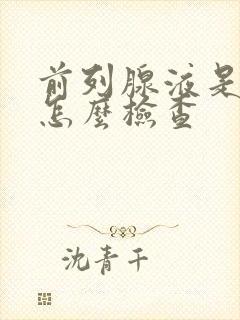 前列腺液是
怎麼檢查
沈青千